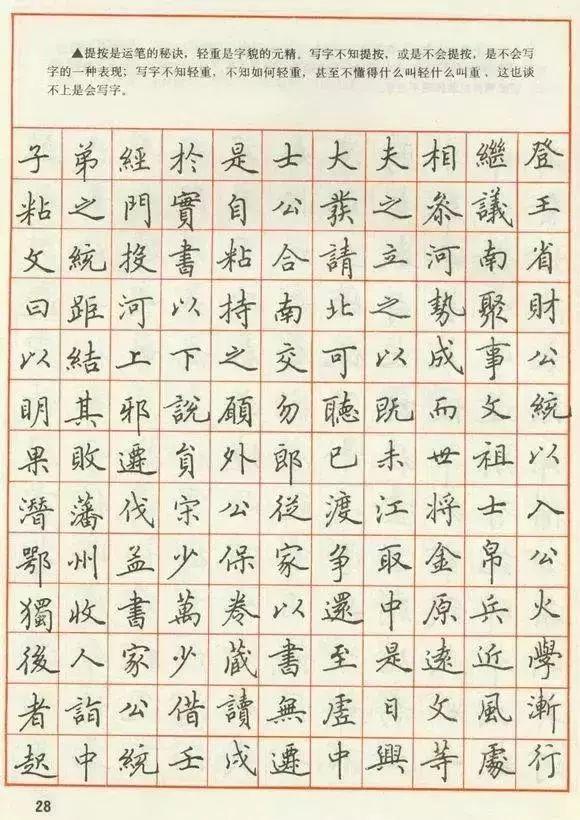 ▲提按是运笔的秘诀，轻重是字貌的元精。写字不知提按，或是不会提按，是不会写
字的一种表现；写字不知轻重，不知如何轻重，甚至不懂得什么叫轻什么叫重、这也谈
不上是会写字。
子弟經於是士大夫相繼登
粘之門實自公發之參議王
文統投書粘合請立河南省
曰距河以持南北之勢聚財
以結上下之交可以成事公
明其邪說願勿聽既而文統
果敗遷員外郎已未世祖以
潛藩伐宋公從渡江將士入
鄂州益少保家爭取金帛公
獨收書萬卷以還中原兵火
後人家少藏書至是遠近學
者詣公借讀無虛日文風漸
起中統壬戌遷中興等處行
28